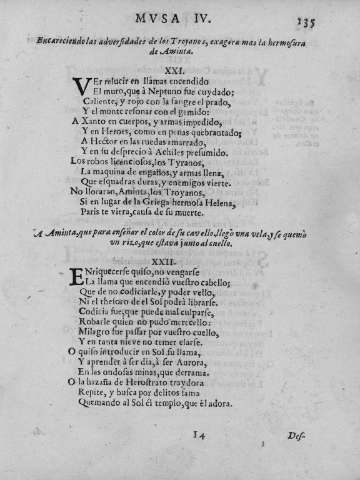 MVSA IV.
135
Encareciendo las adversidades de los Troyanos, exagera mas la hermosura
de Aminta.
XXI.
VEr relucir en llamas encendido
El muro, que à Neptuno fue cuydado;
Caliente, y rojo con la sangre el prado,
Y el monte resonar con el gemido:
A Xanto en cuerpos, y armas impedido,
Y en Heroes, como en peñas quebrantado;
A Hector en las ruedas amarrado,
Y en su desprecio à Achiles presumido.
Los robos licenciosos, los Tyranos,
La maquina de engaños, y armas llena,
Que esquadras duras, y enemigos vierte.
No lloraran, Aminta, los Troyanos,
Si en lugar de la Griega hermosa Helena,
Paris te viera, causa de su muerte.
A Aminta, que para enseñar el color de su cavello, llegò vna vela, y se quemò
vn rizo, que estava junto al cuello.
XXII.
ENriquecerse quiso, no vengarse
La llama que encendiò vuestro cabello;
Que de no codiciarle, y poder vello,
Ni el thesoro de el Sol podrà librarse.
Codicia fue, que puede mal culparse,
Robarle quien no pudo merecello:
Milagro fue passar por vuestro cuello,
Y en tanta nieve no temer elarse.
O quiso introducir en Sol su llama,
Y aprender à ser dia, à ser Aurora,
En las ondosas minas, que derrama.
O la hazaña de Herostrato traydora
Repite, y busca por delitos fama
Quemando al Sol el templo, que èl adora.
I4
Des-